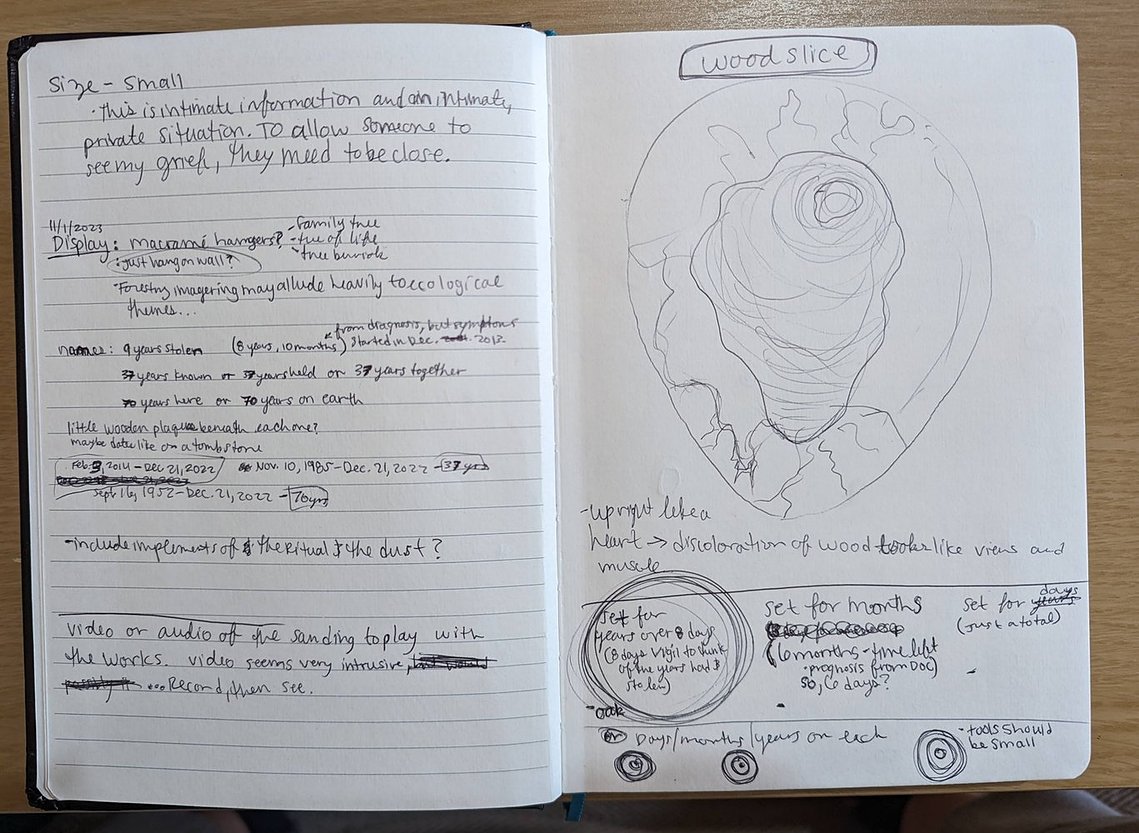 Size - Small
· This is intimate information and an intimate,
private situation. To allow someone to
see my grief, they need to be close.
11/1/2023
Display: macramé hangers?
- family tree
- tree of life
- tree burials
: just hang on wall?
· Forestry imagering may allude heavily to ecological
themes...
names: 9 years stolen (8 years, 10 months)
from diagnosis, but symptoms
started in Dec. 2013.
37 years known or 37 years held or 37 years together
70 years here or 70 years on earth
little wooden plaque beneath each one?
maybe dates like on a tombstone
Feb. 3, 2014 - Dec 21, 2022
Nov. 10, 1985 - Dec. 21, 2022 - 37 yrs
Sept 16, 1952 - Dec. 21, 2022 - 70 yrs
- include implements of the ritual & the dust?
video or audio of the sanding to play with
the works. video seems very intrusive,
... Record, then see.
wood slice
- upright like a
heart → discoloration of wood looks like viens and
muscle
set for
years over 8 days
(8 days vigil to think
of the years had &
stolen)
- oak
set for months
(6 months - time left
· prognosis from DOC)
so, 6 days?
set for days
(just a total)
or days/months/years on each
- tools should
be small